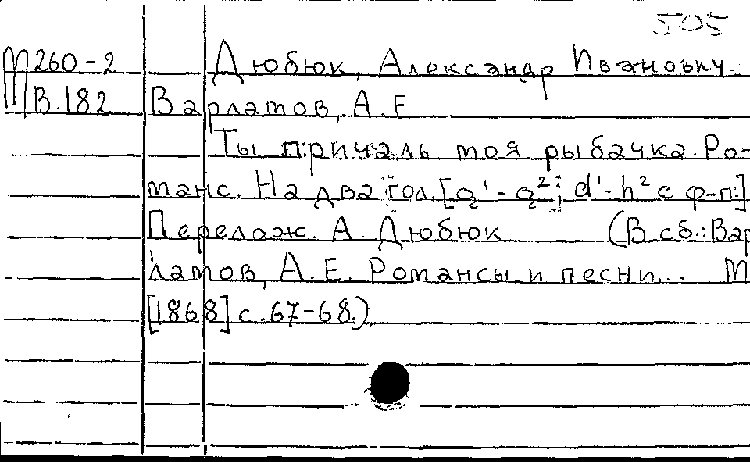 505
М 260-2 Дюбюк, Александр Иванович.
В.182 Варламов, А.Е
Ты причаль моя рыбачка. Ро-
манс. На два гол. [g¹-g²; d¹-h² с ф-п.]
Перелож. А. Дюбюк (В сб.: Вар
ламов, А.Е. Романсы и песни... М
[1868] с.67-68.)